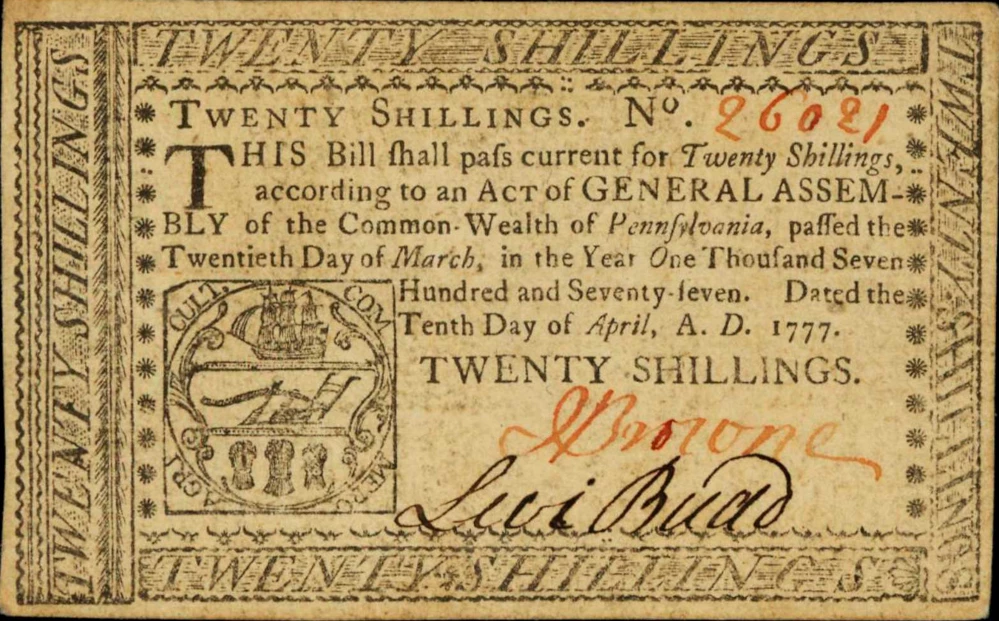 TWENTY SHILLINGS
TWENTY SHILLINGS
TWENTY SHILLINGS. Nº. 26021
THIS Bill ſhall paſs current for Twenty Shillings,
according to an ACT of GENERAL ASSEM-
BLY of the Common-Wealth of Pennſylvania, paſſed the
Twentieth Day of March, in the Year One Thouſand Seven
Hundred and Seventy-ſeven. Dated the
Tenth Day of April, A. D. 1777.
TWENTY SHILLINGS.
CULT. COM
AGRI MERC
J Browne
Levi Budd
TWENTY SHILLINGS
TWENTY SHILLINGS